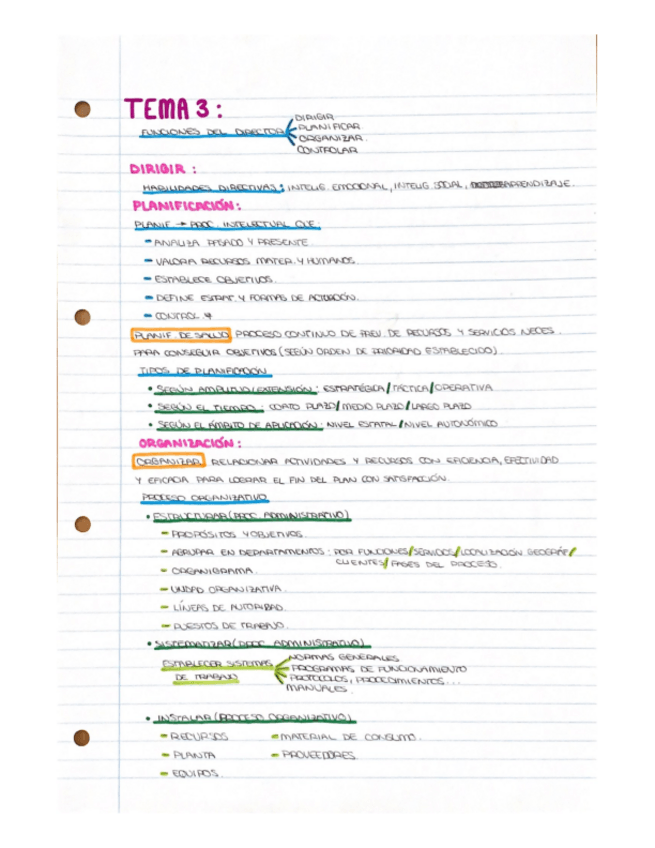 TEMA 3:
FUNCIONES DEL DIRECTOR
DIRIGIR
PLANIFICAR
ORGANIZAR.
CONTROLAR
DIRIGIR:
HABILIDADES DIRECTIVAS: INTELIG. EMOCIONAL, INTELIG. SOCIAL, APRENDIZAJE.
PLANIFICACIÓN:
PLANIF → PROC. INTELECTUAL QUE:
- ANALIZA PASADO Y PRESENTE.
- VALORA RECURSOS MATER. Y HUMANOS.
- ESTABLECE OBJETIVOS.
- DEFINE ESTRAT. Y FORMAS DE ACTUACIÓN.
- CONTROL
PLANIF. DE SALUD PROCESO CONTINUO DE PREV. DE RECURSOS Y SERVICIOS NECES.
PARA CONSEGUIR OBJETIVOS (SEGÚN ORDEN DE PRIORIDAD ESTABLECIDO).
TIPOS DE PLANIFICACIÓN
• SEGÚN AMPLITUD/EXTENSIÓN: ESTRATÉGICA/TÁCTICA/OPERATIVA
• SEGÚN EL TIEMPO: CORTO PLAZO/MEDIO PLAZO/LARGO PLAZO
• SEGÚN EL ÁMBITO DE APLICACIÓN: NIVEL ESTATAL/NIVEL AUTONÓMICO
ORGANIZACIÓN:
ORGANIZAR RELACIONAR ACTIVIDADES Y RECURSOS CON EFICIENCIA, EFECTIVIDAD
Y EFICACIA PARA LOGRAR EL FIN DEL PLAN CON SATISFACCIÓN.
PROCESO ORGANIZATIVO
• ESTRUCTURAR (PROC. ADMINISTRATIVO)
- PROPÓSITOS Y OBJETIVOS.
- AGRUPAR EN DEPARTAMENTOS: POR FUNCIONES/SERVICIOS/LOCALIZACIÓN GEOGRÁF/
CLIENTES/FASES DEL PROCESO.
- ORGANIGRAMA.
- UNIDAD ORGANIZATIVA.
- LÍNEAS DE AUTORIDAD.
- PUESTOS DE TRABAJO.
• SISTEMATIZAR (PROC. ADMINISTRATIVO)
ESTABLECER SISTEMAS
DE TRABAJO
NORMAS GENERALES
PROGRAMAS DE FUNCIONAMIENTO
PROTOCOLOS, PROCEDIMIENTOS...
MANUALES.
• INSTALAR (PROCESO ORGANIZATIVO)
- RECURSOS - MATERIAL DE CONSUMO.
- PLANTA - PROVEEDORES.
- EQUIPOS.